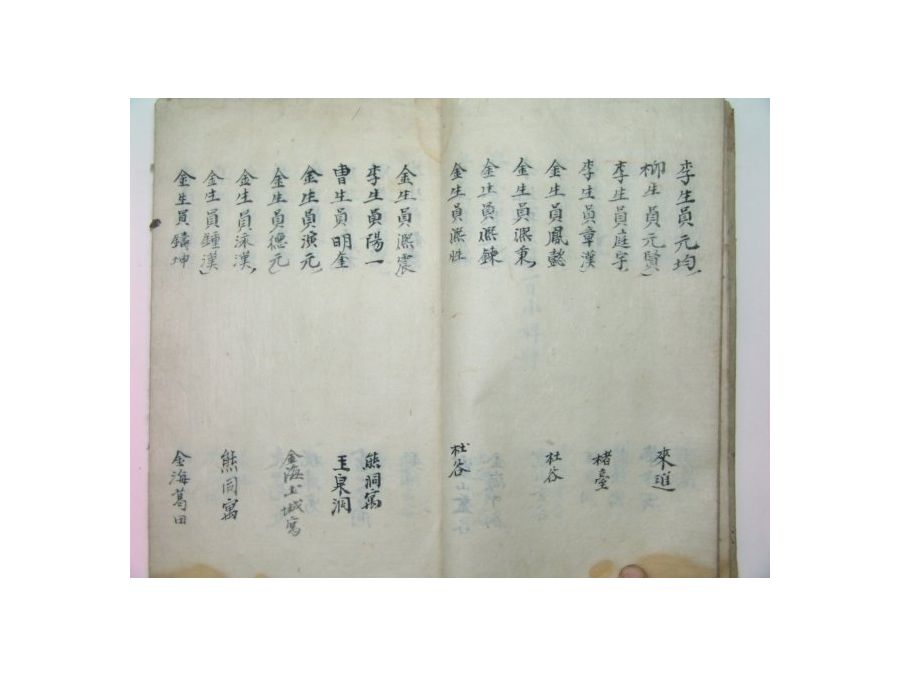 李生員元均
來進
柳生員元賢
李生員庭宇
楮臺
李生員章漢
金生員鳳懿
杜谷
金生員熙秉
金生員熙鍊
金生員熙
杜谷
金生員熙震
李生員陽一
熊洞寓
曺生員明奎
王泉洞
金生員演元
金生員德元
金海土城寓
金生員泳漢
金生員鍾漢
熊同寓
金生員鑄坤
金海葛田